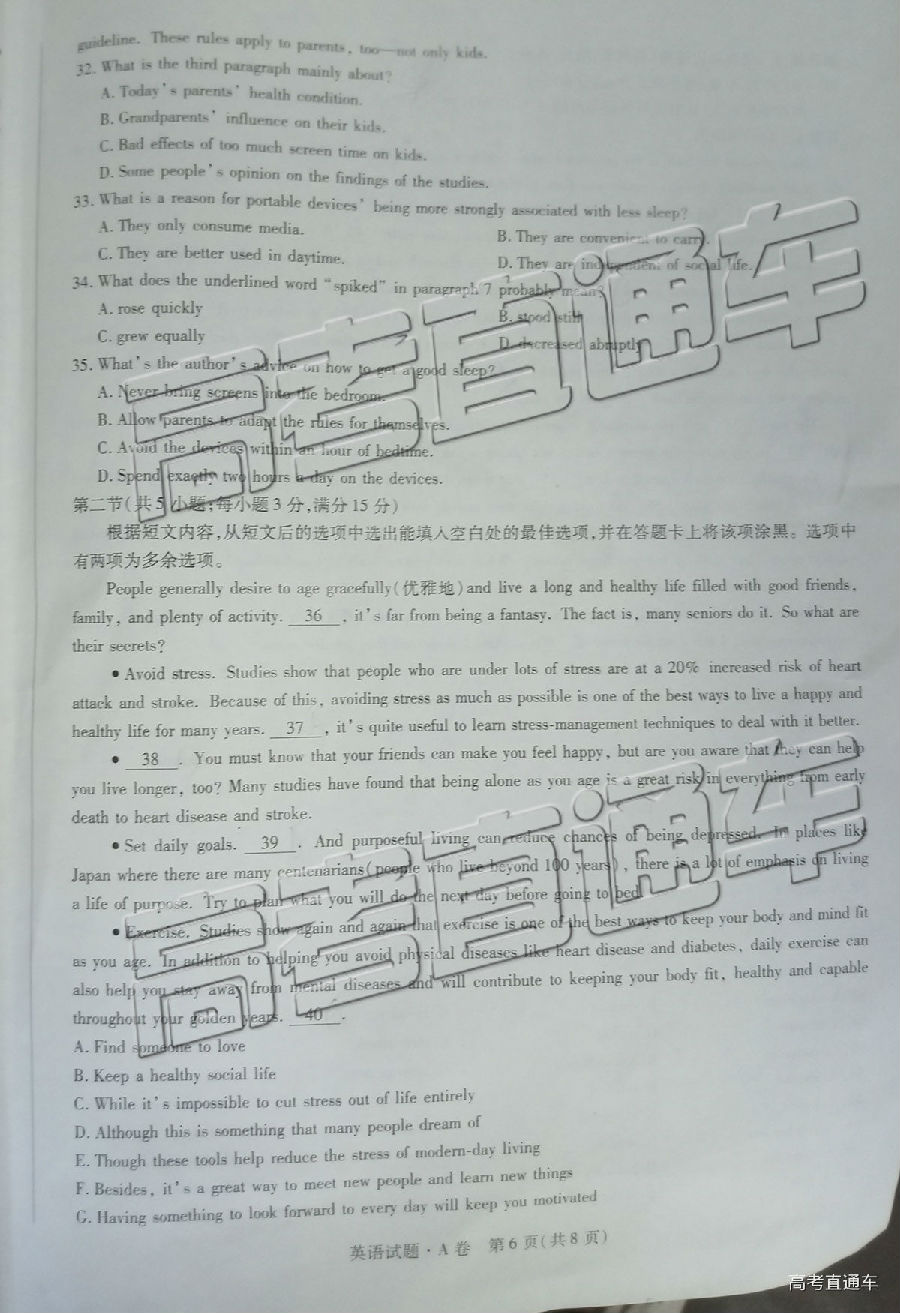 guideline. These rules apply to parents, too—not only kids.
32. What is the third paragraph mainly about?
A. Today's parents' health condition.
B. Grandparents' influence on their kids.
C. Bad effects of too much screen time on kids.
D. Some people's opinion on the findings of the studies.
33. What is a reason for portable devices' being more strongly associated with less sleep?
A. They only consume media.
B. They are convenient to carry.
C. They are better used in daytime.
D. They are independent of social life.
34. What does the underlined word "spiked" in paragraph 7 probably mean?
A. rose quickly
B. stood still
C. grew equally
D. decreased abruptly
35. What's the author's advice on how to get a good sleep?
A. Never bring screens into the bedroom.
B. Allow parents to adapt the rules for themselves.
C. Avoid the devices within an hour of bedtime.
D. Spend exactly two hours a day on the devices.
第二节(共5小题;每小题3分,满分15分)
根据短文内容,从短文后的选项中选出能填入空白处的最佳选项,并在答题卡上将该项涂黑。选项中
有两项为多余选项。
People generally desire to age gracefully(优雅地)and live a long and healthy life filled with good friends,
family, and plenty of activity. 36 , it's far from being a fantasy. The fact is, many seniors do it. So what are
their secrets?
• Avoid stress. Studies show that people who are under lots of stress are at a 20% increased risk of heart
attack and stroke. Because of this, avoiding stress as much as possible is one of the best ways to live a happy and
healthy life for many years. 37 , it's quite useful to learn stress-management techniques to deal with it better.
• 38 . You must know that your friends can make you feel happy, but are you aware that they can help
you live longer, too? Many studies have found that being alone as you age is a great risk in everything from early
death to heart disease and stroke.
• Set daily goals. 39 . And purposeful living can reduce chances of being depressed. In places like
Japan where there are many centenarians(people who live beyond 100 years), there is a lot of emphasis on living
a life of purpose. Try to plan what you will do the next day before going to bed.
• Exercise. Studies show again and again that exercise is one of the best ways to keep your body and mind fit
as you age. In addition to helping you avoid physical diseases like heart disease and diabetes, daily exercise can
also help you stay away from mental diseases and will contribute to keeping your body fit, healthy and capable
throughout your golden years. 40 .
A. Find someone to love
B. Keep a healthy social life
C. While it's impossible to cut stress out of life entirely
D. Although this is something that many people dream of
E. Though these tools help reduce the stress of modern-day living
F. Besides, it's a great way to meet new people and learn new things
G. Having something to look forward to every day will keep you motivated
英语试题·A卷 第6页(共8页)
高考直通车
高考直通车
高考直通车